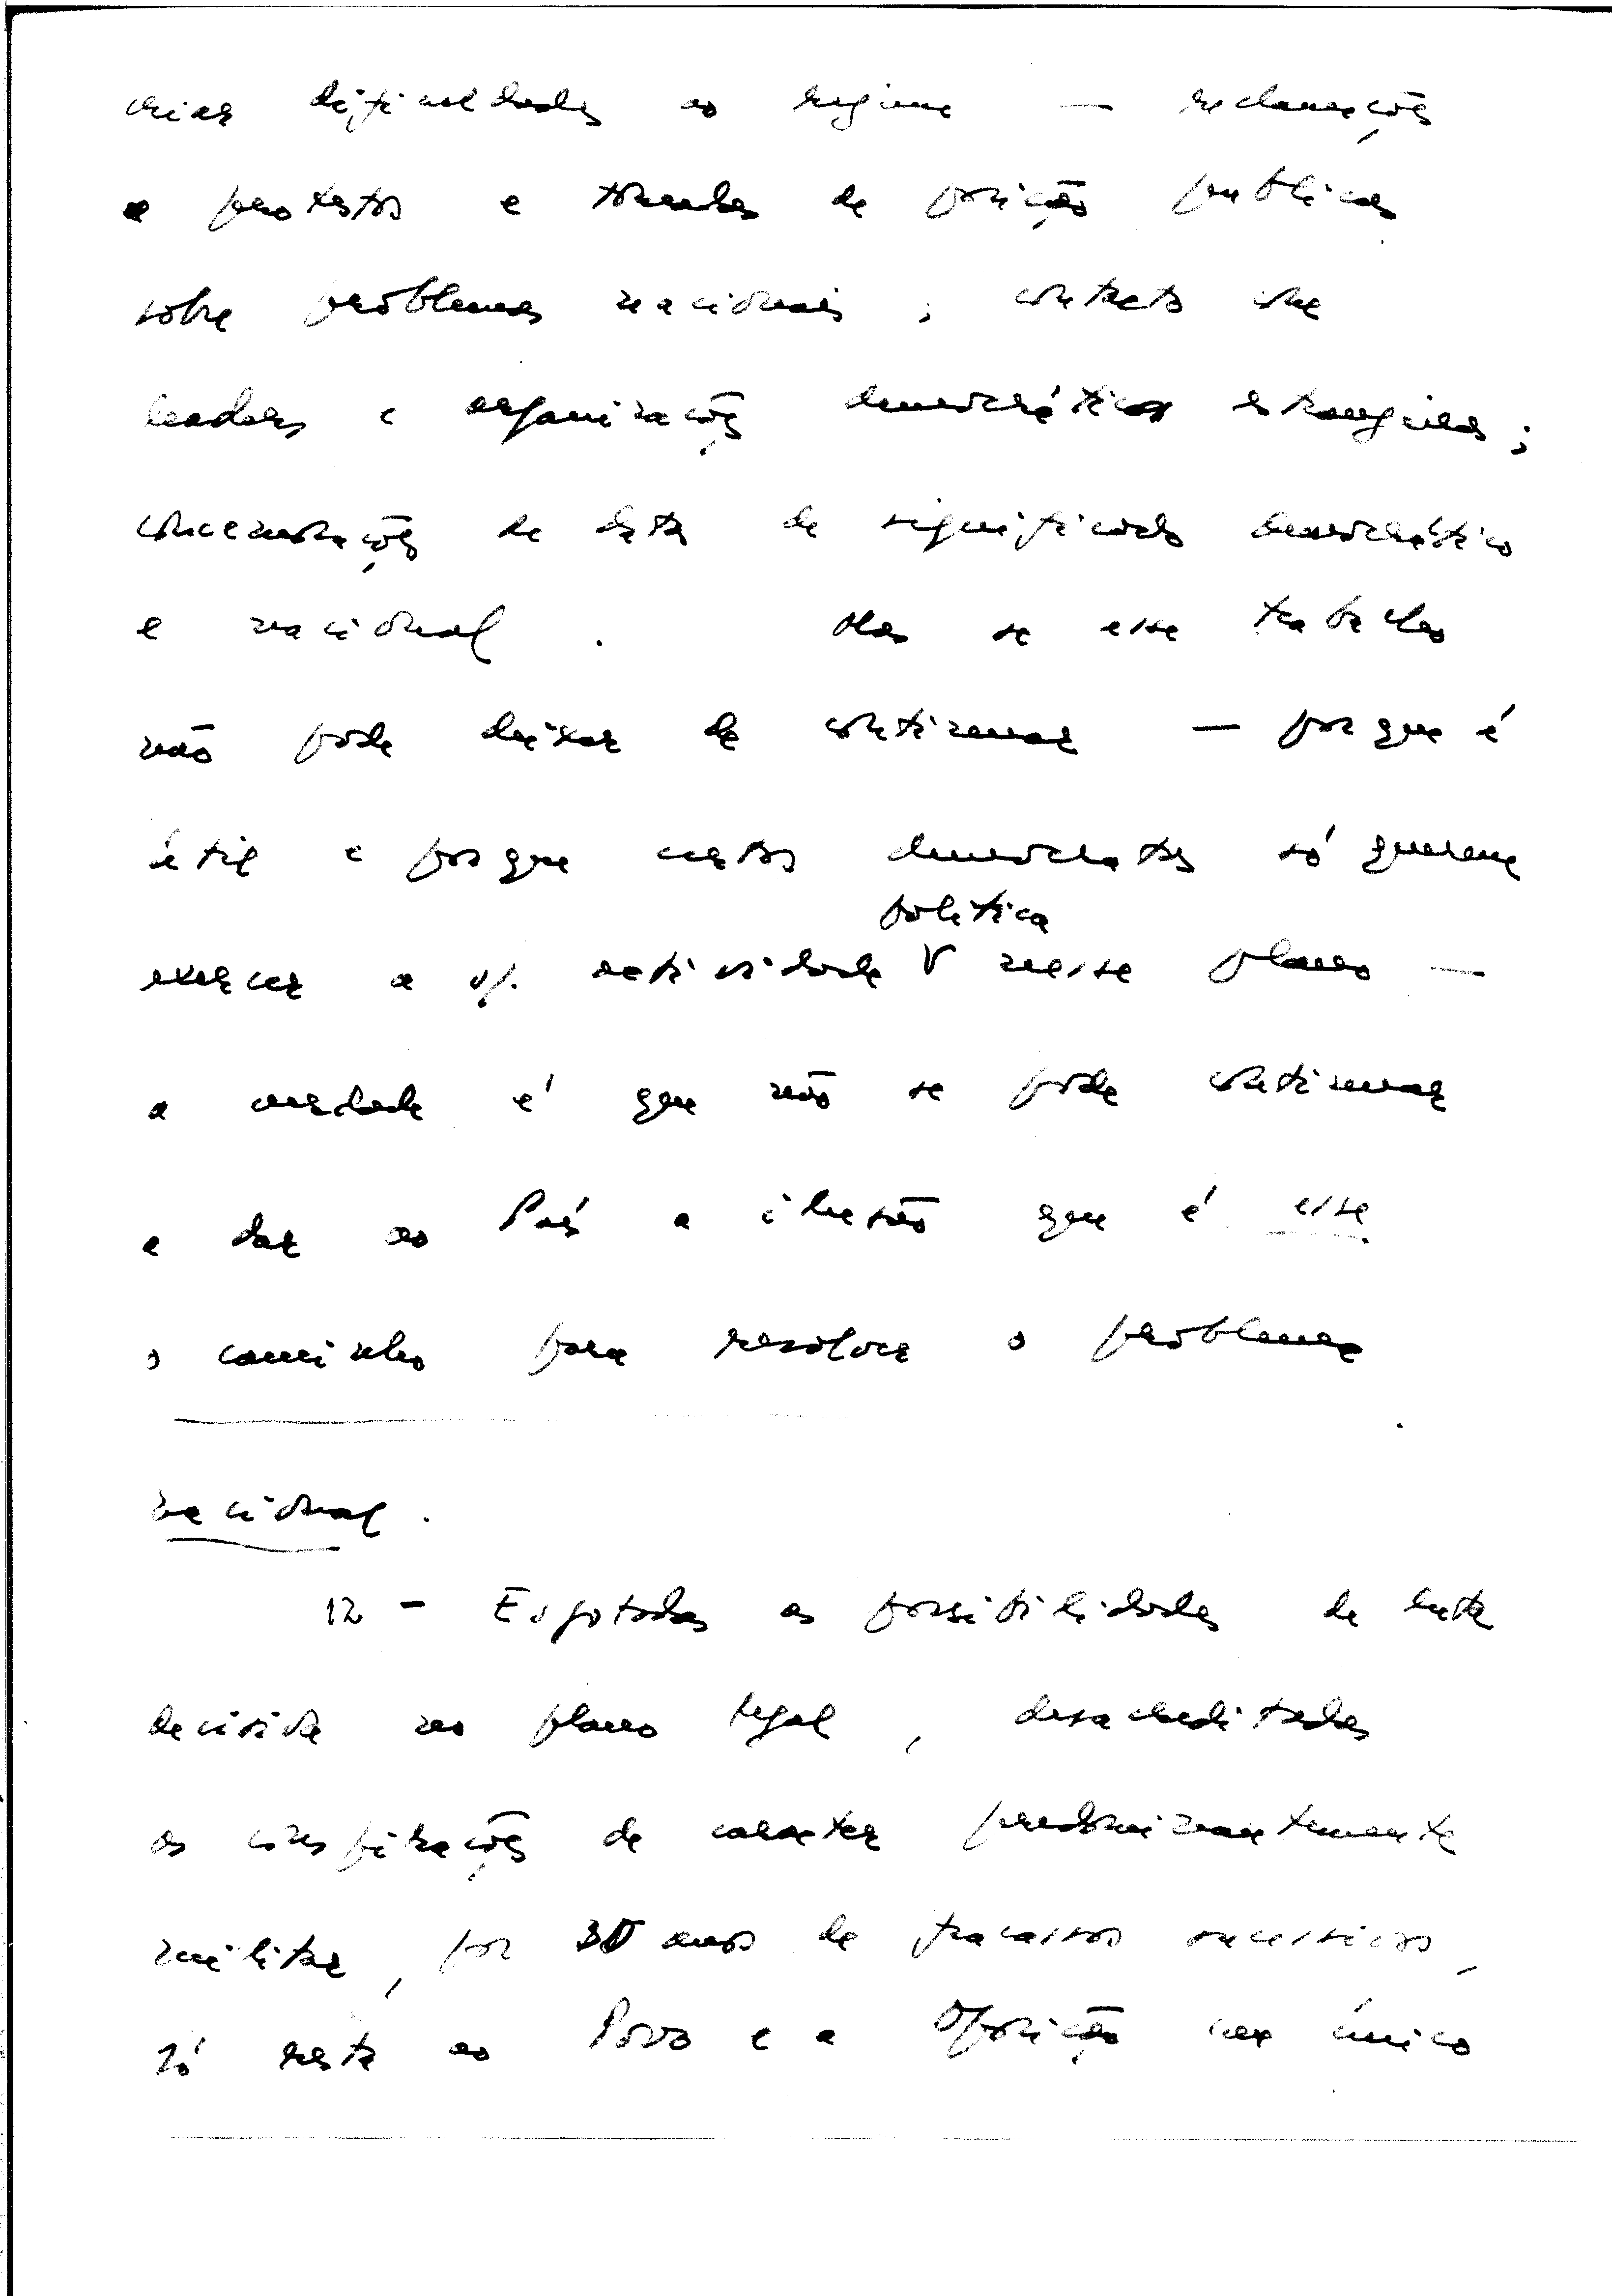 criar dificuldades ao regime — reclamações
e protestos e tomadas de posição publicas
sobre problemas nacionais; contacto com
leaders e organizações democráticas estrangeiras;
comemorações de datas de significado democrático
e nacional. Mas se esse trabalho
não pode deixar de continuar — porque é
útil e porque certos democratas só querem
política
exercer a s/. actividade V nesse plano —
a verdade é que não se pode continuar
a dar ao País a ilusão que é esse
o caminho para resolver o problema
nacional.
12 - Esgotadas as possibilidades de luta
decisiva no plano legal, desacreditadas
as conspirações de caracter predominantemente
militar, por 30 anos de fracassos sucessivos,
só resta ao Povo e a Oposição um único